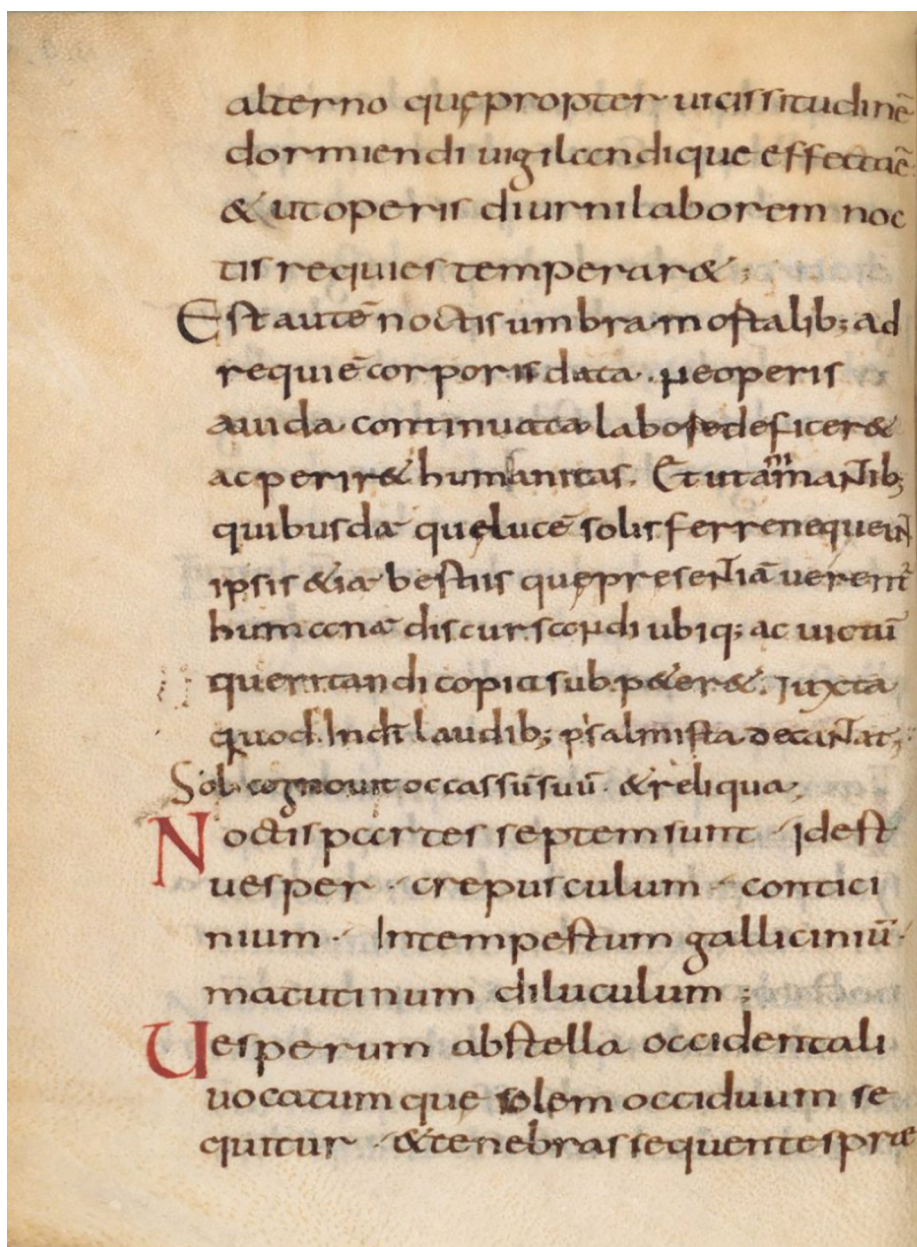 alterno quę propter uicissitudinē
dormiendi uigilandique effectaē
& ut operis diurni laborem noc
tis requies temperar& ;
Est autē noctis umbra mortalib; ad
requiē corporis data. ne operis
auida continuata labore deficer&
ac perir& humanitas. Et ut animantib;
quibusdā quę lucē solis ferre nequeunt
ipsis &iā bestiis quę presentiā uerentur
humanā discursandi ubiq; ac uictū
queritandi copia subp&er&. Iuxta
quod In dī laudib; psalmista decantat;
Sol cognouit occassū suū. & reliqua;
Noctis partes septem sunt · Idest
uesper · crepusculum · contici
nium · Intempestum galliciniū ·
matutinum diluculum ;
Uesperum ab stella occidentali
uocatum que solem occiduum se
quitur · & tenebras sequentes prae